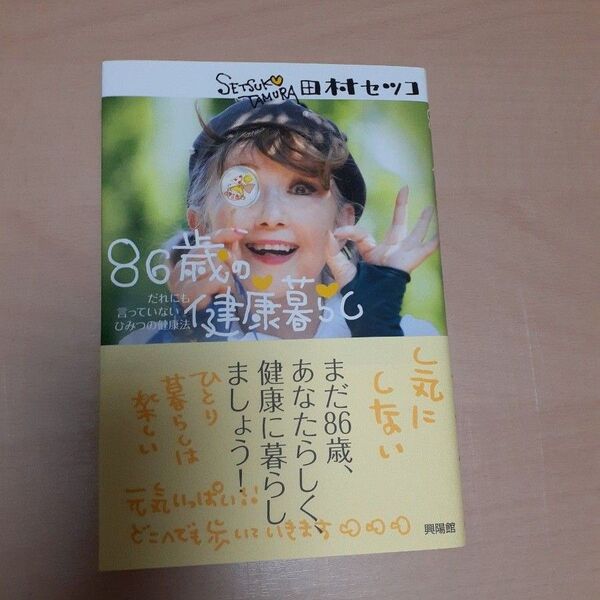 SETSUKO
TAMURA
田村セツコ
86歳の
健康暮らし
だれにも
言っていない
ひみつの健康法
気に
しない
まだ86歳、
あなたらしく、
健康に暮らし
ましょう！
ひとり
暮らしは
楽しい
元気いっぱい!!
どこへでも歩いていきます
興陽館